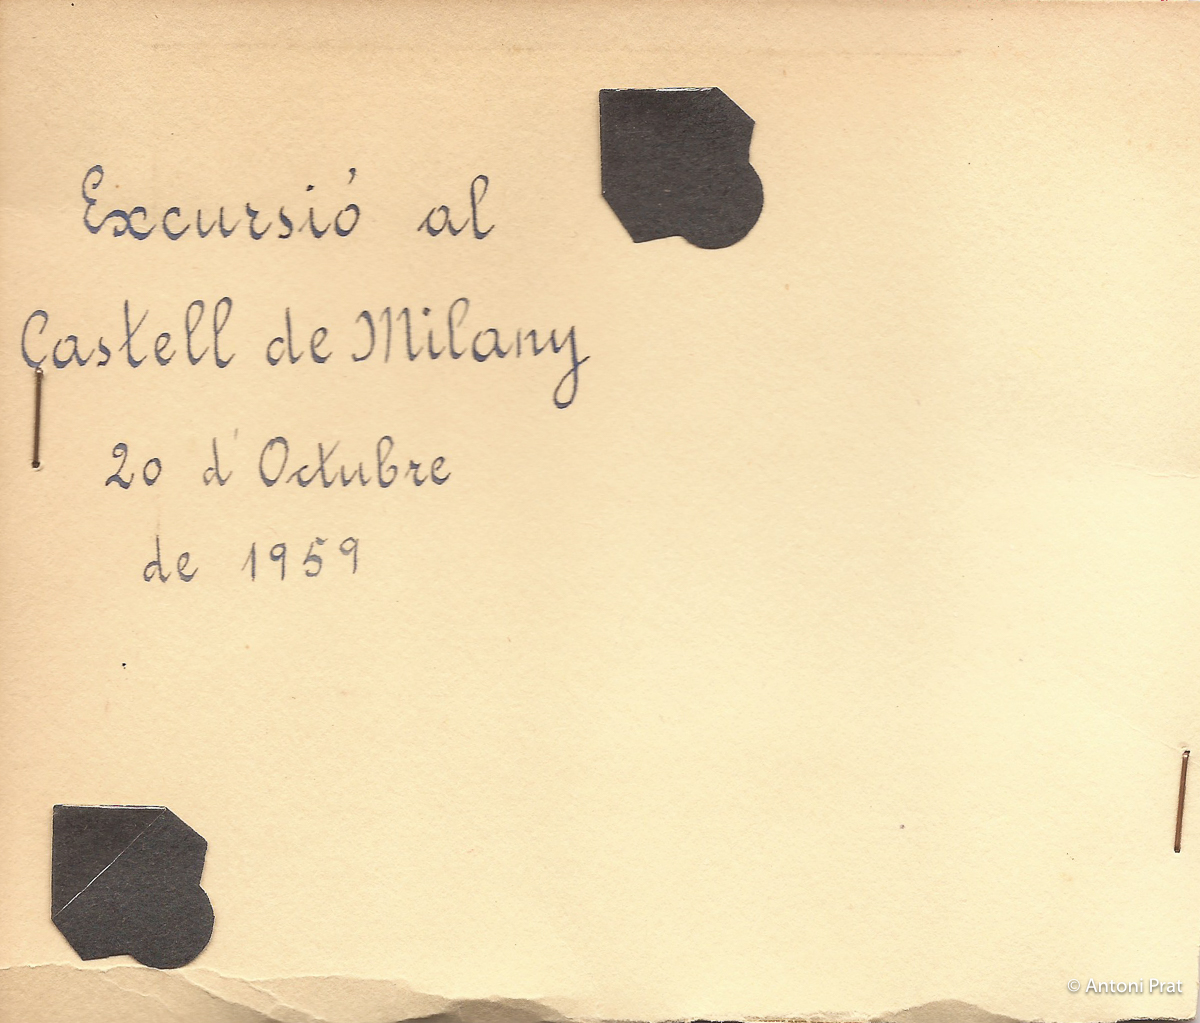 Excursió al
Castell de Milany
20 d'Octubre
de 1959
© Antoni Prat